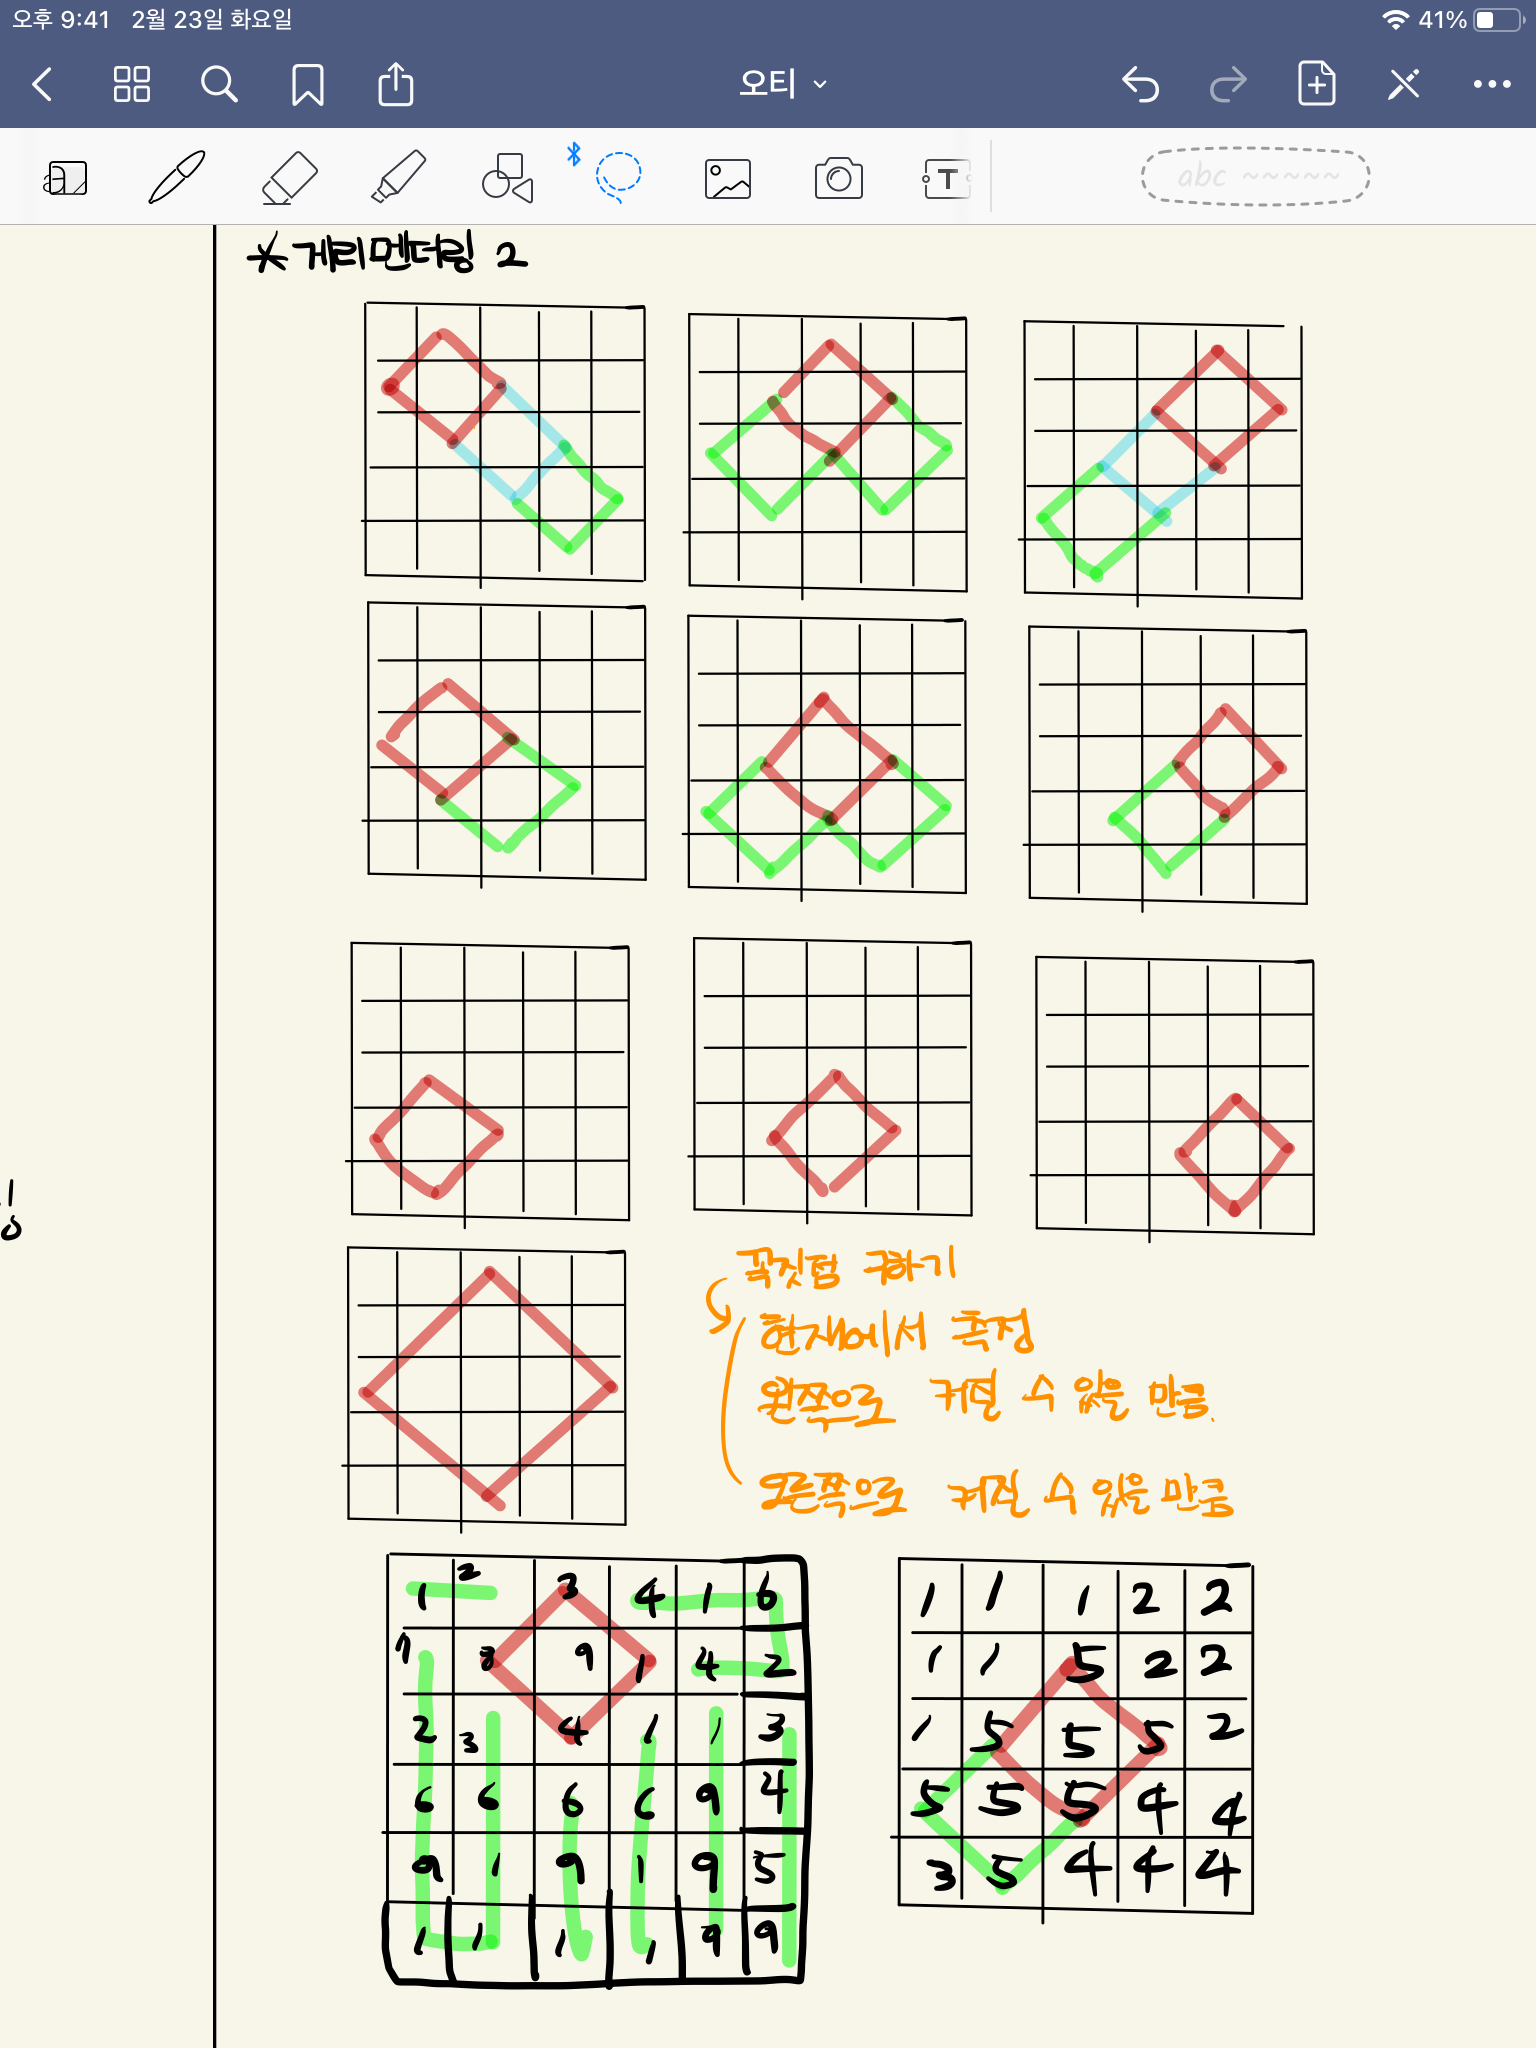 오후 9:41 2월 23일 화요일 41%
오티
T abc ~~~~~
* 게리멘더링 2
꼭짓점 구하기
현재에서 측정
왼쪽으로 커질 수 있을 만큼.
오른쪽으로 커질 수 있을 만큼
1 2 3 4 1 6
7 3 9 1 4 2
2 3 4 1 1 3
6 6 6 6 9 4
9 1 9 1 9 5
1 1 1 1 9 9
1 1 1 2 2
1 1 5 2 2
1 5 5 5 2
5 5 5 4 4
3 5 4 4 4